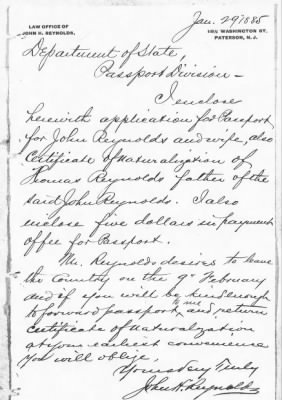 LAW OFFICE OF
JOHN H. REYNOLDS,
Jan. 29 1885
WASHINGTON ST.
PATERSON, N. J.
Department of State,
Passport Division –
I enclose
herewith application for Passport
for John Reynolds and wife, also
Certificate of Naturalization of
Thomas Reynolds father of the
said John Reynolds. I also
enclose five dollars in payment
of fee for Passport.
Mr. Reynolds desires to leave
the Country on the 9th February
and if you will be kind enough
to forward to me passport, and return
certificate of Naturalization
at your earliest convenience
You will oblige,
Yours Very Truly
John H. Reynolds